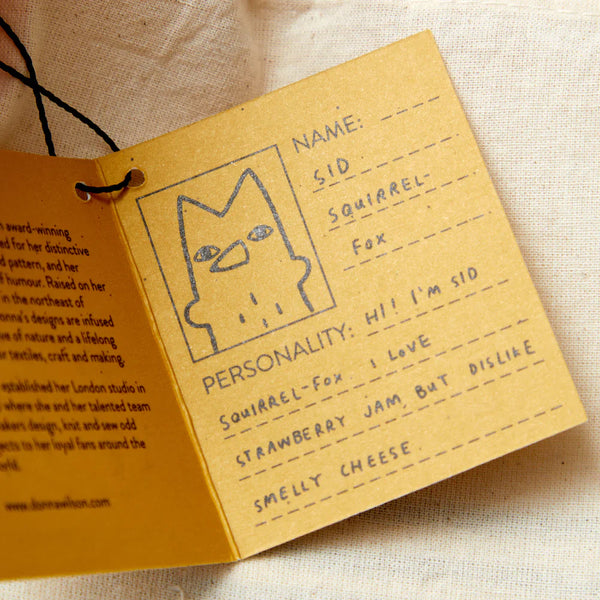 award-winning
for her distinctive
pattern, and her
of humour. Raised on her
in the northeast of
designs are infused
of nature and a lifelong
textiles, craft and making.
established her London studio in
where she and her talented team
design, knit and sew odd
to her loyal fans around the
www.donnawilson.com
NAME:
SID
SQUIRREL-
FOX
PERSONALITY: HI! I'M SID
SQUIRREL-FOX I LOVE
STRAWBERRY JAM, BUT DISLIKE
SMELLY CHEESE.